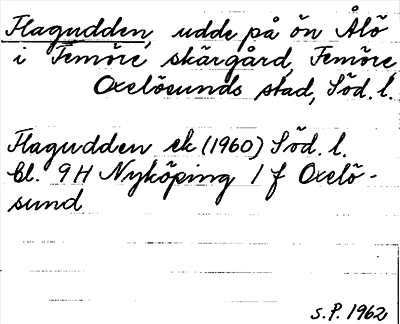 Flagudden, udde på ön Ålö
i Femöre skärgård, Femöre
Oxelösunds stad, Söd. l.
Flagudden ek (1960) Söd. l.
bl. 9H Nyköping 1 f Oxelö-
sund
S.P. 1962